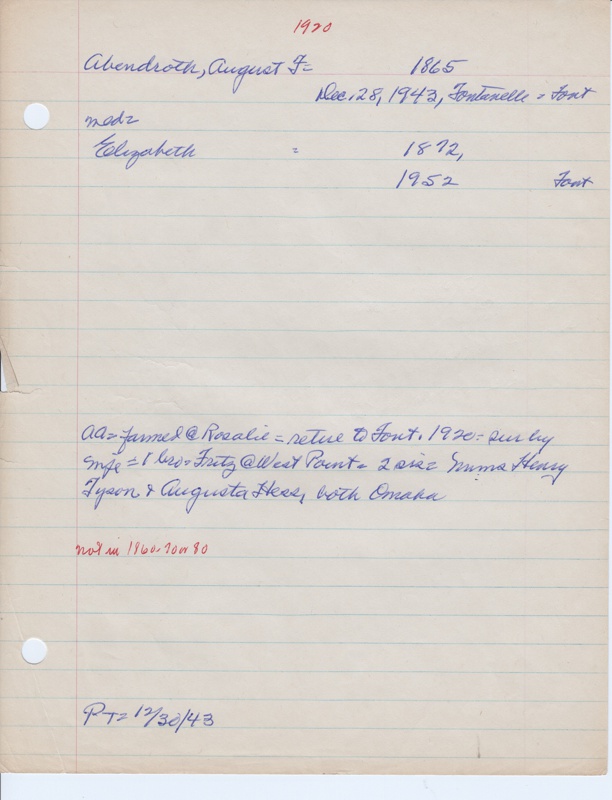 1920
Abendroth, August F= 1865
Dec. 28, 1943, Fontanelle = Font
mod=
Elizabeth = 1872,
1952 Font
AA= farmed @ Rosalie = retire to Font. 1920 = sur by
wife = 1 bro = Fritz @ West Point = 2 sis = Mmes Henry
Tyson & Augusta Hess, both Omaha
not in 1860, 70 or 80
PT= 12/30/43